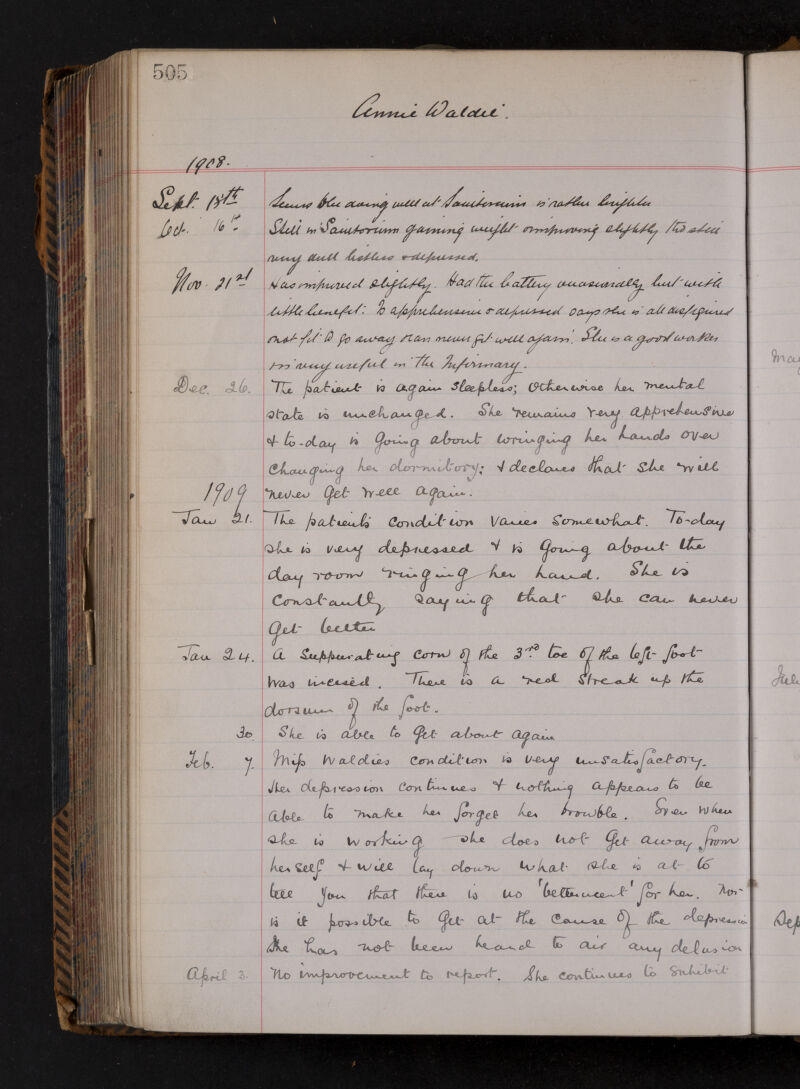 505
Annie Waldie.
1908.
Sept. 18th Seems to be doing well at Sanitorium is rather brighter
Oct. 16th Still in Sanitorium gaining weight & improving slightly tho still
very dull listless & depressed.
Nov. 21st Has improved slightly. Had the battery occasionally but with
little benefit. Is apprehensive & depressed says she is all disfigured
not fit to go away & can never get well again. She is a good worker
& is very useful in the Infirmary.
Dec. 26. The patient is again sleepless; otherwise her mental
state is unchanged. She remains very apprehensive
& to-day is going about wringing her hands over
changing her dormitory; & declares that she will
never get well again.
1909
Jan 21. The patient's condition varies somewhat. To-day
she is very depressed & is going about the
day room ringing her hand. She is
constantly saying that she can never
get better
Jan 24. A suppurating corn of the 3rd toe of the left foot
was incised. There is a red streak up the
dorsum of the foot.
30. She is able to get about again
Feb. 7. Miss Waldies condition is very unsatisfactory.
Her depression continues & nothing appears to be
able to make her forget her trouble. Even when
she is working she does not get away from
herself & will lay down what she is at to
tell you that there is no 'betterment' for her. Nor
is it possible to get at the cause of the depression
She has not been heard to air any delusion
April 3. No improvement to report. She continues to exhibit